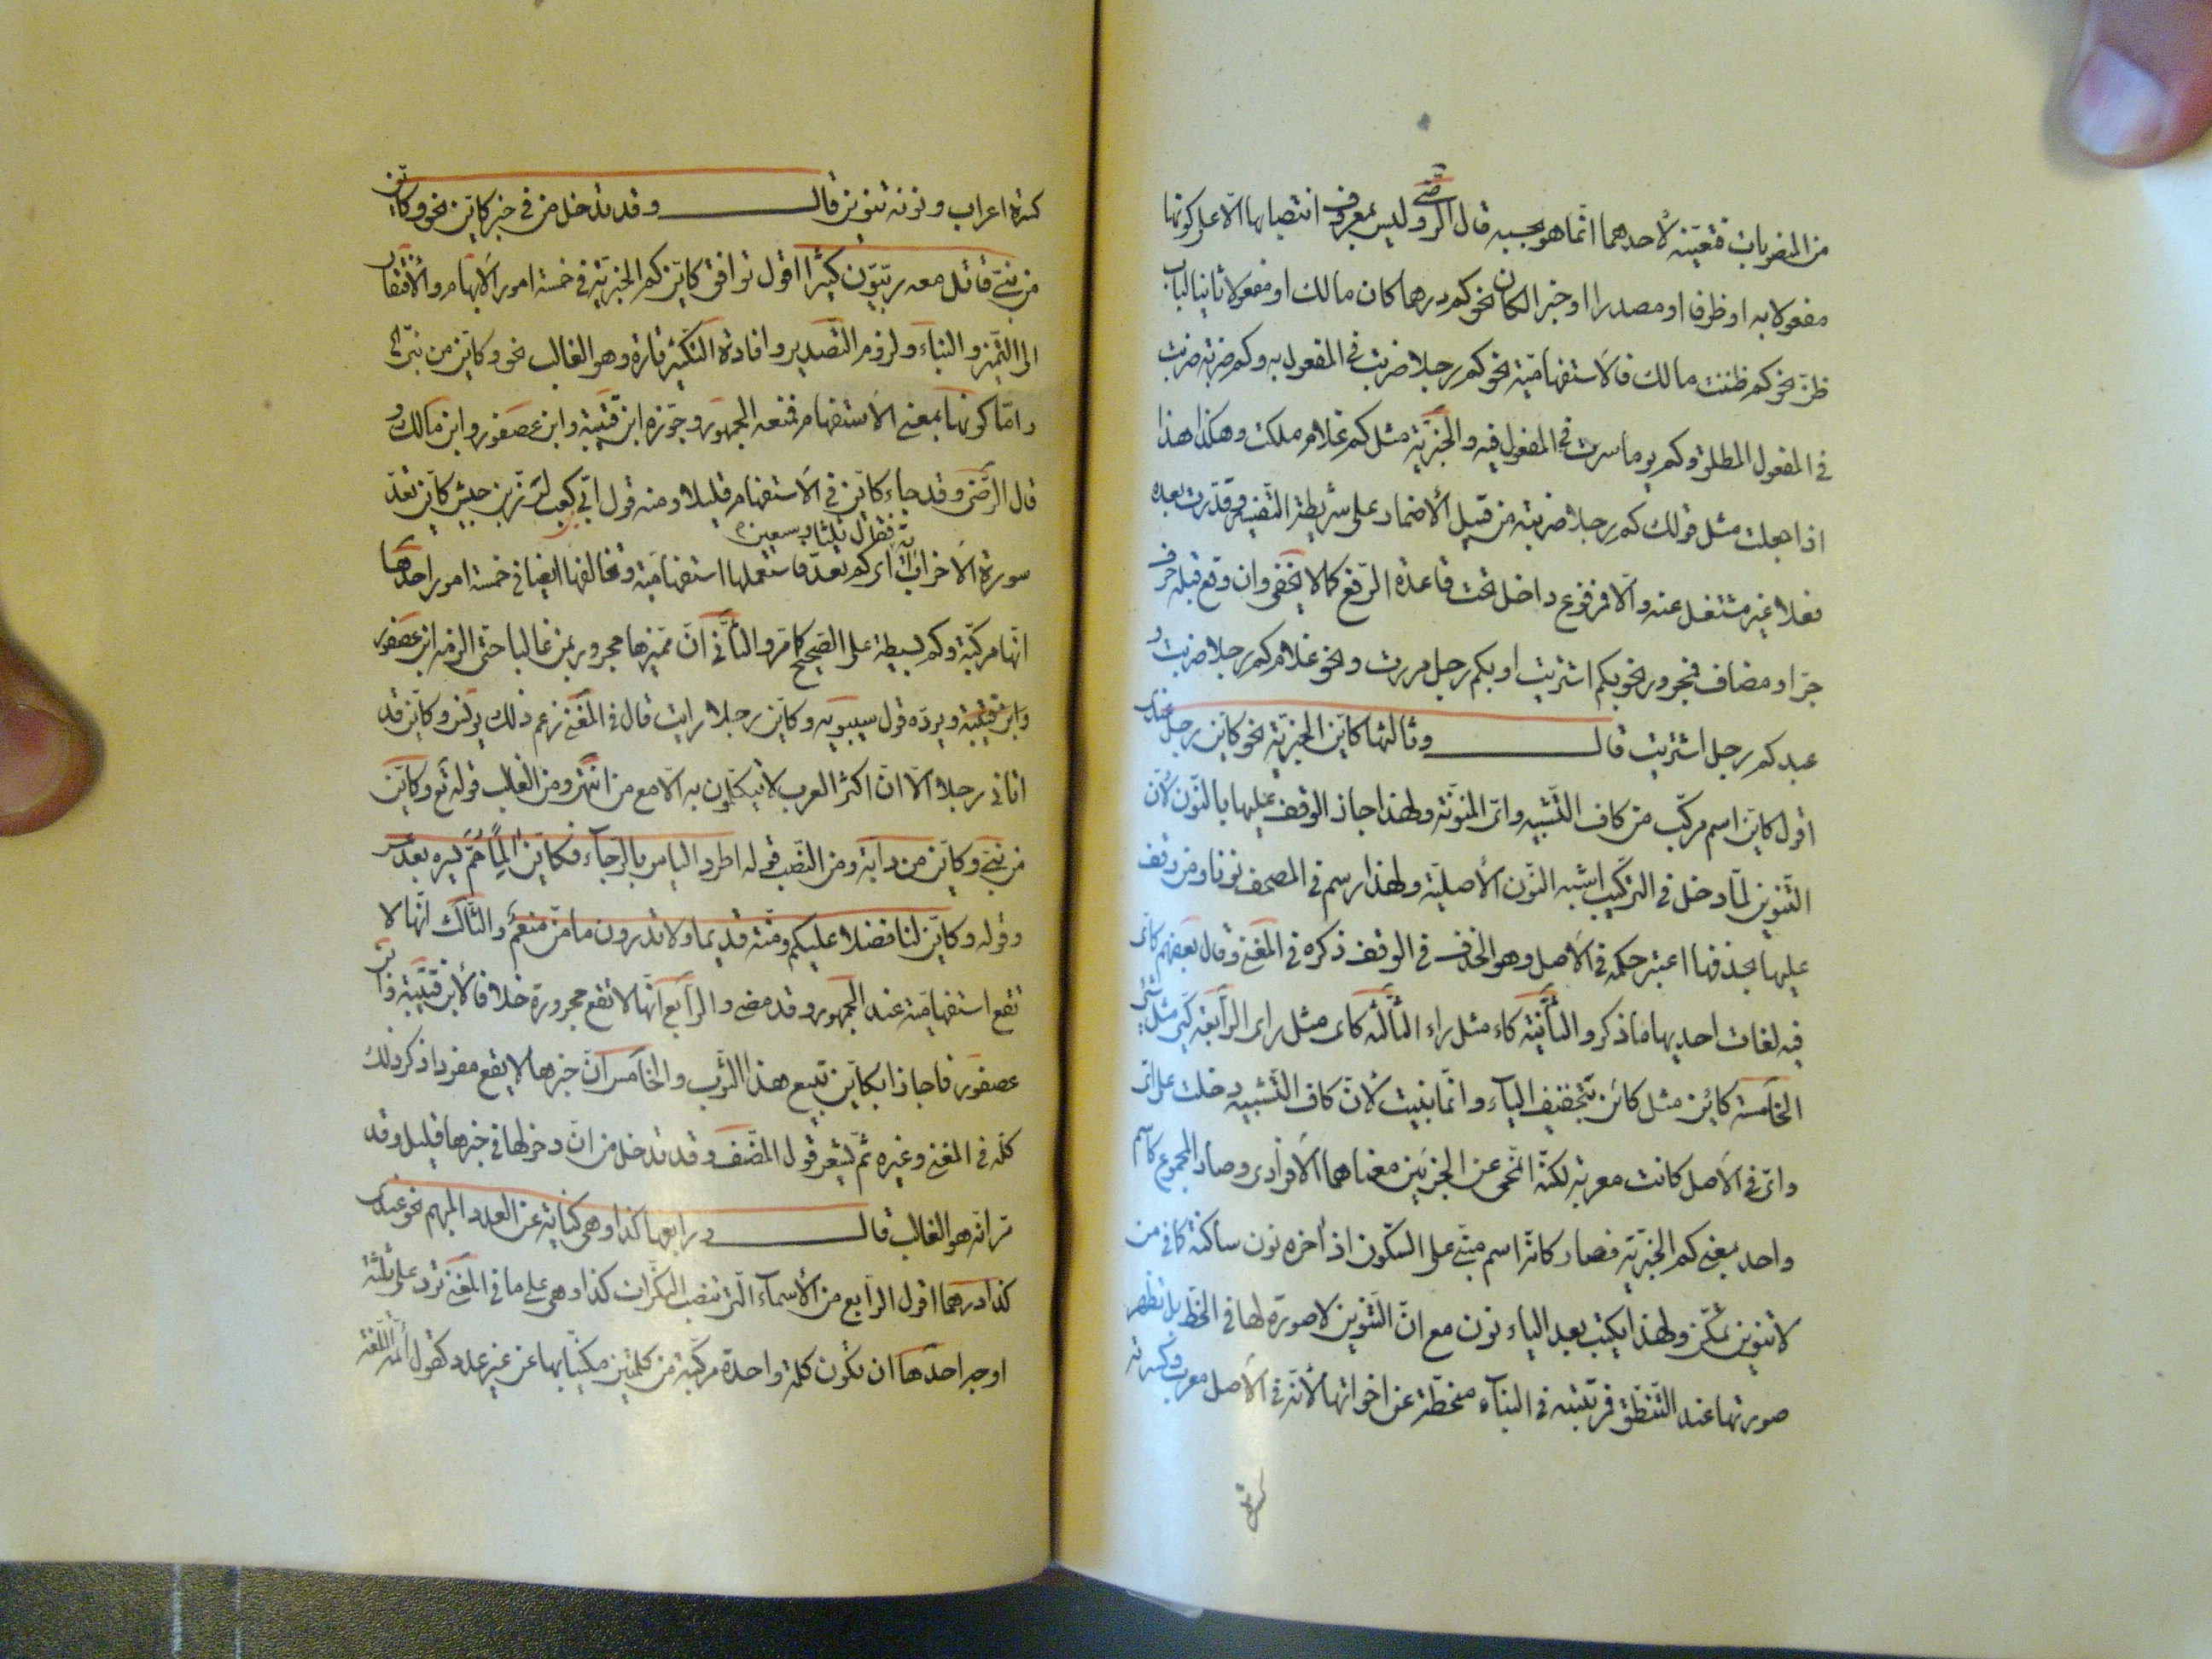 من المنصوبات فتعينه لأحدهما انما هو بحسبه قال الرضى وليس بمعروف انتصابها الا على كونها
مفعولا به او ظرفا او مصدرا او خبر الكان نحو كم درهما كان مالك او مفعولا ثانيا لباب
ظن نحو كم ظننت مالك فالاستفهامية نحو كم رجلا ضربت في المفعول به وكم ضربة ضربت
في المفعول المطلق وكم يوما سرت في المفعول فيه والخبرية مثل كم غلام ملكت وهكذا هذا
اذا جعلت مثل قولك كم رجلا ضربته من قبيل الأضمار على شريطة التفسير وقدرت بعده
فعلا غير مشتغل عنه والا فمرفوع داخل تحت قاعدة الرفع كما لا يخفى وان وقع قبله حرف
جر او مضاف فمجرور نحو بكم اشتريت او بكم رجل مررت ونحو غلام كم رجلا ضربت و
عبد كم رجل اشتريت قال وثالثها كاين الخبرية نحو كاين رجل عندى
اقول كاين اسم مركب من كاف التشبيه واى المنونة ولهذا جاز الوقف عليها بالنون لأن
التنوين لما دخل في التركيب اشبه النون الأصلية ولهذا رسم في المصحف نونا ومن وقف
عليها بحذفها اعتبر حكمه في الأصل وهو الحذف في الوقف ذكره في المغنى وقال بعضهم كاى
فيه لغات احديها ما ذكر والثانية كاء مثل راء الثالثة كاى مثل راى الرابعة كيئ مثل شئ
الخامسة كائن مثل كائن بتخفيف الياء وانما بنيت لأن كاف التشبيه دخلت على اى
واى في الأصل كانت معربة لكنه انمحى عن الجزئين معناهما الأفرادى وصار المجموع كاسم
واحد بمعنى كم الخبرية فصار كانه اسم مبنى على السكون اذ اخره نون ساكنة كما في من
لا تنوين تمكن ولهذا يكتب بعد الياء نون مع ان التنوين لا صورة لها في الخط بل تظهر
صورتها عند التنطق فرتبته في البناء منحطة عن اخواتها لأنه في الأصل معرب وكسرته
كسرة
كسرة اعراب ونونه تنوين قال وقد تدخل من في خبر كاين نحو وكاين
من نبى قاتل معه ربيون كثير اقول توافق كاين كم الخبرية في خمسة امور الأبهام والأفتقار
الى التميز والبناء ولزوم التصدير وافادة التكثير تارة وهو الغالب نحو وكاين من نبى الخ
واما كونها بمعنى الاستفهام فمنعه الجمهور وجوزه ابن قتيبة وابن عصفور وابن مالك و
قال الرضى وقد جاء كاين في الأستفهام قليلا ومنه قول ابى كعب لزر بن حبيش كاين تعد
فقال ثلثا وسبعين
سورة الأحزاب اية اى كم تعد فاستعملها استفهامية وتخالفها ايضا في خمسة امور احدها
انها مركبة وكم بسيطة على الصحيح كما مر والثانى ان مميزها مجرور بمن غالبا حتى الزمه ابن عصفور
وابن قتيبة ويرده قول سيبويه وكاين رجلا رايت قال في المغنى زعم ذلك يونس وكاين قد
اتانى رجلا الا ان اكثر العرب لا يتكلمون به الا مع من انتهى ومن الغالب قوله تع وكاين
من نبى وكاين من دابة ومن النصب قوله اطرد الياس بالرجاء فكاين الما حم يسره بعد عسر
وقوله وكاين لنا فضلا عليكم ومنة قديما ولا تدرون ما من منعم والثالث انها لا
تقع استفهامية عند الجمهور وقد مضى والرابع انها لا تقع مجرورة خلافا لأبن قتيبة وابن
عصفور فاجازا بكاين تبيع هذا الثوب والخامس ان خبرها لا يقع مفردا ذكر ذلك
كله في المغنى وغيره ثم يشعر قول المصنف وقد تدخل من ان دخولها في خبرها قليل وقد
مر انه هو الغالب قال ورابعها كذا وهى كناية عن العدد المبهم نحو عندى
كذا درهما اقول الرابع من الأسماء التى تنصب النكرات كذا وهى على ما في المغنى ترد على ثلثة
اوجه احدها ان تكون كلمة واحدة مركبة من كلمتين مكنيا بها عن غير عدد كقول أئمة اللغة